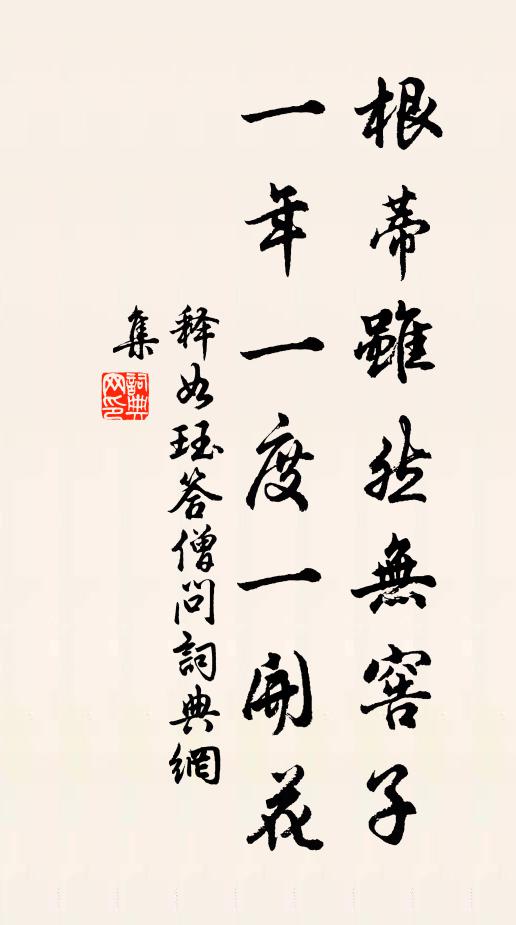 根蒂雖然無窖子
一年一度一開花
释如珏答僧問詞典網
集
詞典
网印